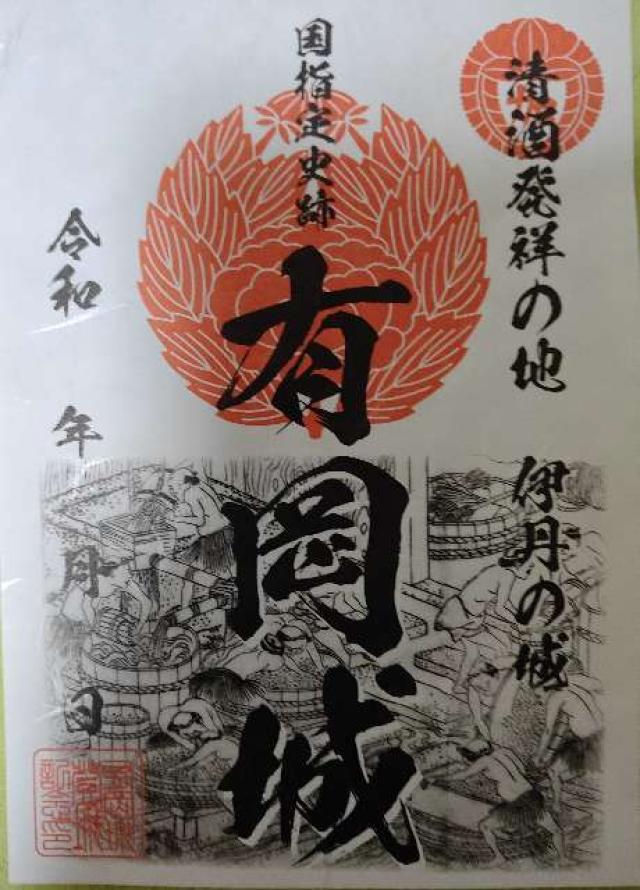 清酒発祥の地　伊丹の城
国指定史跡
有岡城
令和　年　月　日